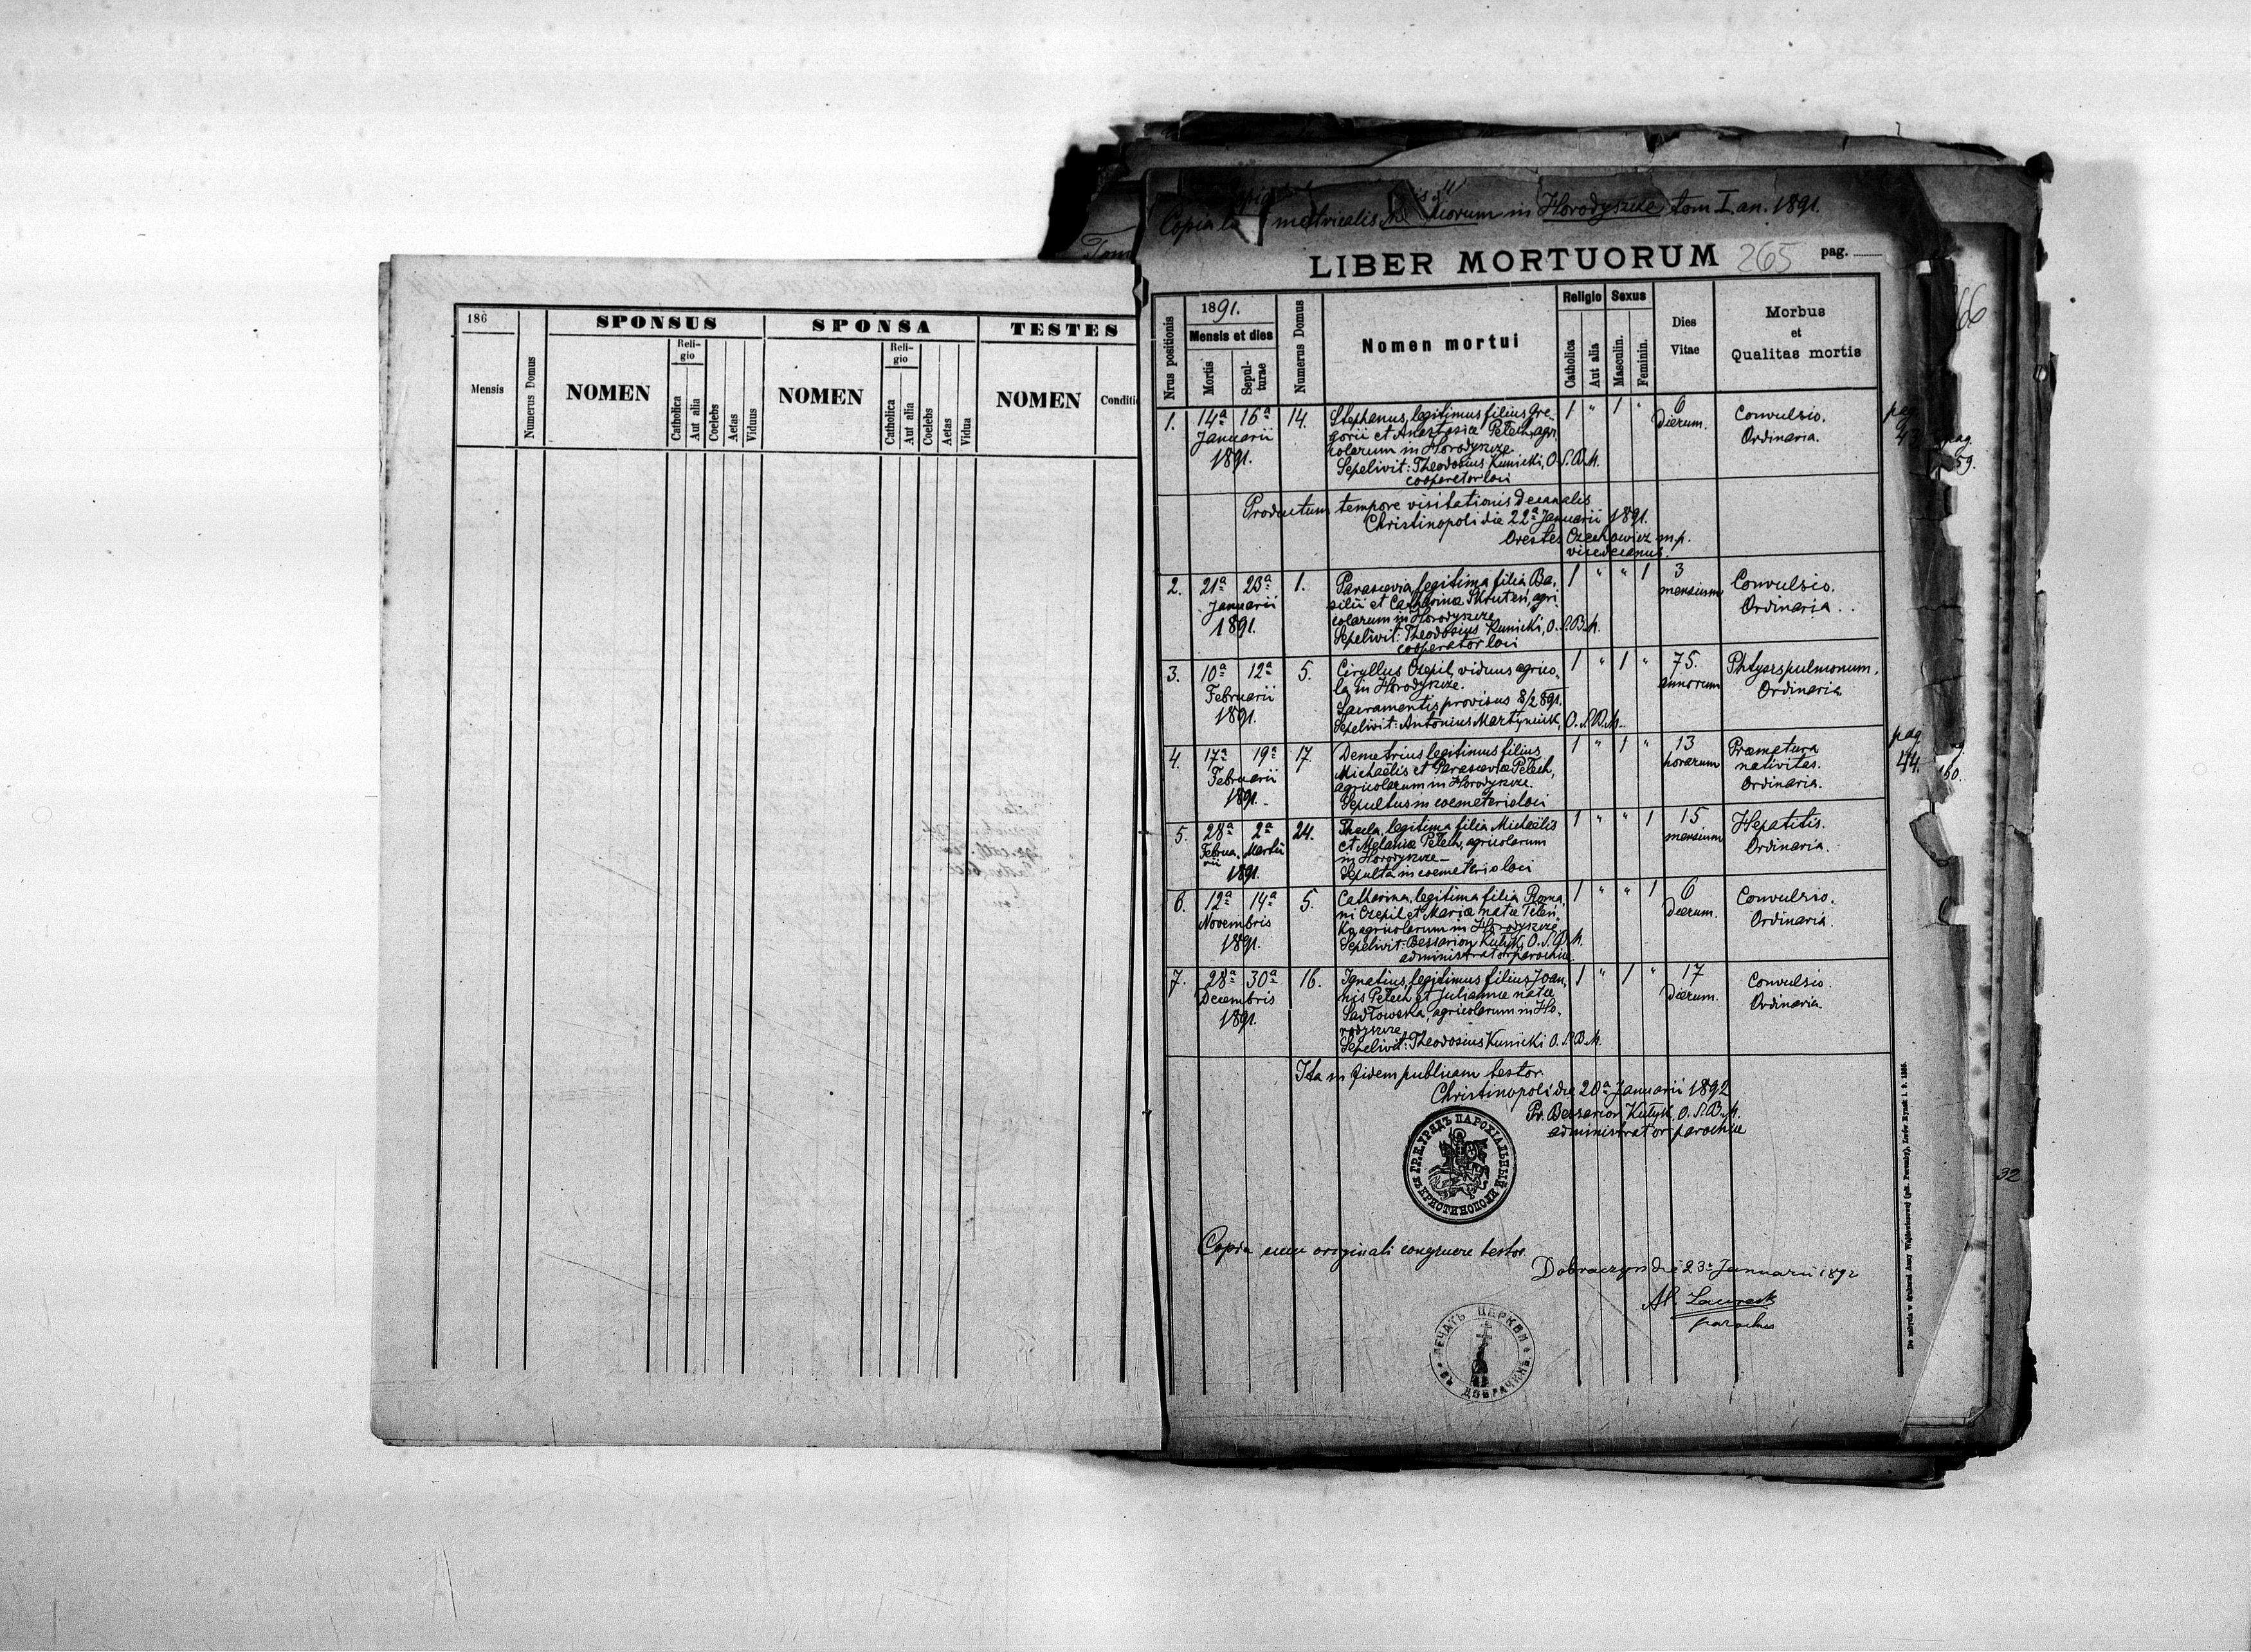 186
SPONSUS
SPONSA
TESTES
Mensis
Numerus Domus
NOMEN
Reli-
gio
Catholica
Aut alia
Coelebs
Aetas
Viduus
NOMEN
Reli-
gio
Catholica
Aut alia
Coelebs
Aetas
Vidua
NOMEN
Conditi
Tom
Copia matricalis in Horodyszcze tom I. an. 1891.
LIBER MORTUORUM 265 pag.
Nrus positionis
1891.
Mensis et dies
Mortis
Sepul-
turae
Numerus Domus
Nomen mortui
Religio
Catholica
Aut alia
Sexus
Masculin.
Feminin.
Dies
Vitae
Morbus
et
Qualitas mortis
1. 14a 16a 14. Stephanus, legitimus filius Gre- 1 " 1 " 6 Convulsio.
Januarii gorii et Anastasiæ Petech, agri- dierum. Ordinaria.
1891. colarum in Horodyszcze
Sepelivit: Theodosius Kunicki, O.S.B.M.
cooperator loci
Productum tempore visitationis decanalis
Christinopoli die 22a Januarii 1891.
Orestes Czechowicz m.p.
vicedecanus.
2. 21a 23a 1. Parascevia, legitima filia Ba- 1 " " 1 3 Convulsio.
Januarii silii et Catharinæ Skruteń, agri- mensium Ordinaria.
1891. colarum in Horodyszcze
Sepelivit: Theodosius Kunicki, O.S.B.M.
cooperator loci
3. 10a 12a 5. Cyryllus Czepil, viduus agrico- 1 " 1 " 75. Phtysis pulmonum.
Februarii la in Horodyszcze. annorum Ordinaria
1891. Sacramentis provisus 8/2 891.
Sepelivit: Antonius Martyniuk, O.S.B.M.
4. 17a 19a 17. Demetrius legitimus filius 1 " 1 " 13 Præmatura
Februarii Michaëlis et Parasceviæ Petech, horarum nativitas.
1891. agricolarum in Horodyszcze. Ordinaria.
Sepultus in coemeterio loci
5. 28a 2a 24. Thecla, legitima filia Michaëlis 1 " " 1 15 Hepatitis.
Februa- Martii et Melaniæ Petech, agricolarum mensium Ordinaria.
rii in Horodyszcze
1891. Sepulta in coemeterio loci
6. 12a 14a 5. Catharina, legitima filia Roma- 1 " " 1 6 Convulsio.
Novembris ni Czepil et Mariæ natæ dierum. Ordinaria.
1891. agricolarum in Horodyszcze
Sepelivit: Bessarion Kutyk, O.S.B.M.
administrator parochiæ
7. 28a 30a 16. Ignatius, legitimus filius Joan- 1 " 1 " 17 Convulsio.
Decembris nis Petech et Julianæ natæ dierum. Ordinaria
1891. Sadłowska, agricolarum in Ho-
rodyszcze
Sepelivit: Theodosius Kunicki O.S.B.M.
Ita in fidem publicam testor.
Christinopoli die 20a Januarii 1892
Pr. Bessarion Kutyk, O.S.B.M.
administrator parochiæ
ГР. К. УРЯДЪ ПАРОХІАЛЬНЫЙ
въ КРИСТИНОПОЛИ
Copia cum originali congruere testor
Dobraczyn die 23a Januarii 1892
parochus
ПЕЧАТЬ ЦЕРКВИ
ВЪ ДОБРАЧИНѢ
pag
43
pag.
59.
pag
44.
60.
66
32